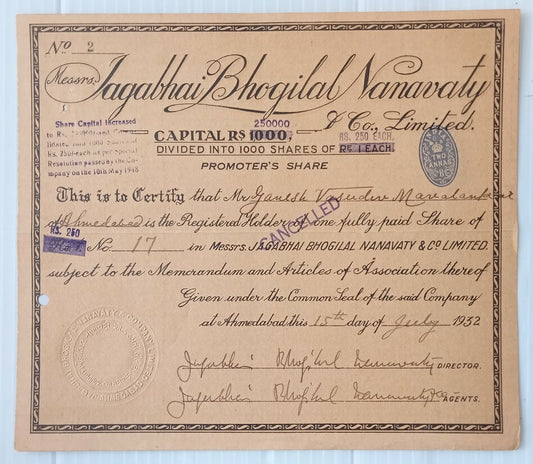 No 2
Messrs. Jagabhai Bhogilal Nanavaty
& Co., Limited.
Share Capital Increased
to Rs.
Resolution passed by the Com-
pany on the 10th May 1948
250000
CAPITAL RS 1000,
RS. 250 EACH.
DIVIDED INTO 1000 SHARES OF RE 1 EACH.
PROMOTER'S SHARE
TWO ANNAS
This is to Certify that Mr Ganesh Vasudev Mavalankar
of Ahmedabad is the Registered Holder of one fully paid Share of
RS. 250
No. 17 in MESSRS. JAGABHAI BHOGILAL NANAVATY & CO. LIMITED.
CANCELLED
subject to the Memorandum and Articles of Association thereof
Given under the Common Seal of the said Company
at Ahmedabad this 15th day of July 1932
Jagabhai Bhogilal Nanavaty DIRECTOR.
Jagabhai Bhogilal Nanavaty & Co AGENTS.